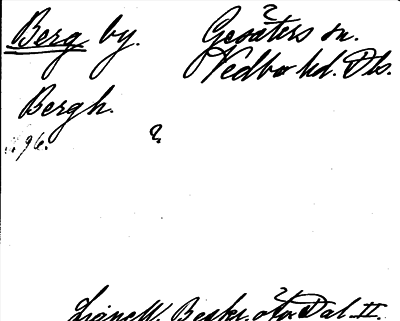 Berg by. Gesäters sn.
Vedbo hd. Dls.
Bergh.
96. ?
Lignell. Beskr. ofv. Dal II.